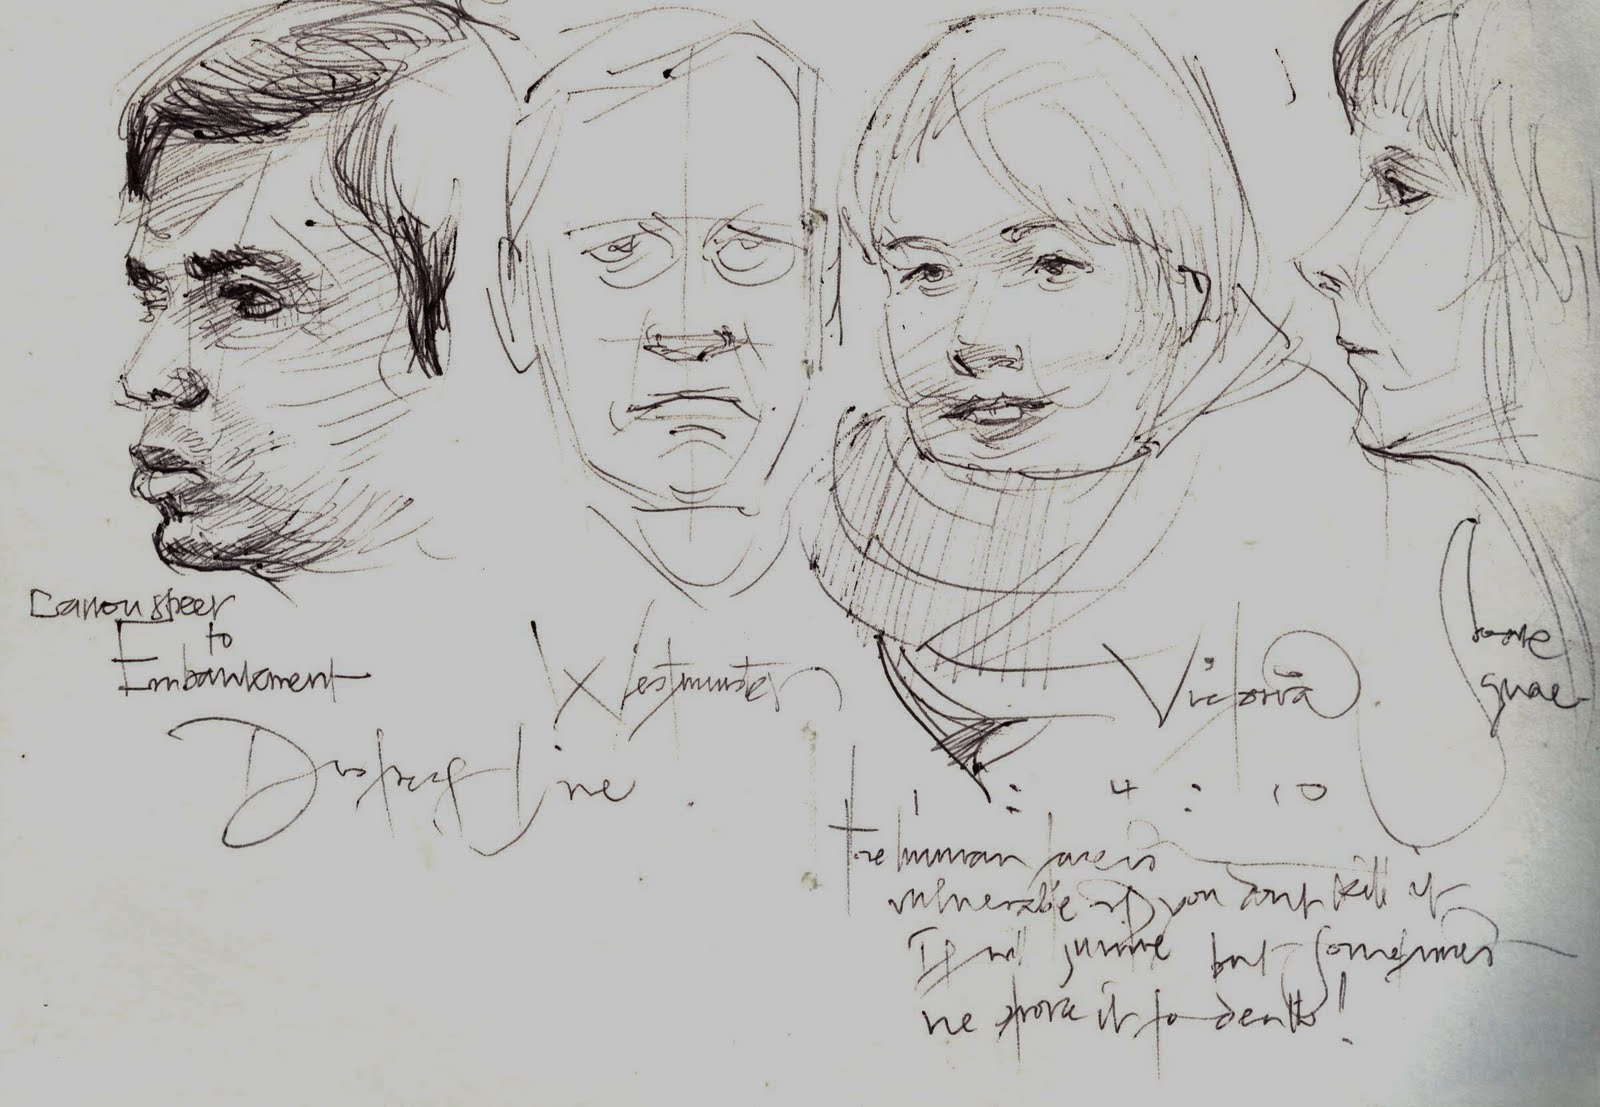 Cannon street
to
Embankment
Westminster
Victoria
Sloane
square
District Line.
1 : 4 : 10
the human face is
vulnerable if you dont kill it
It will survive but sometimes
we it to death!